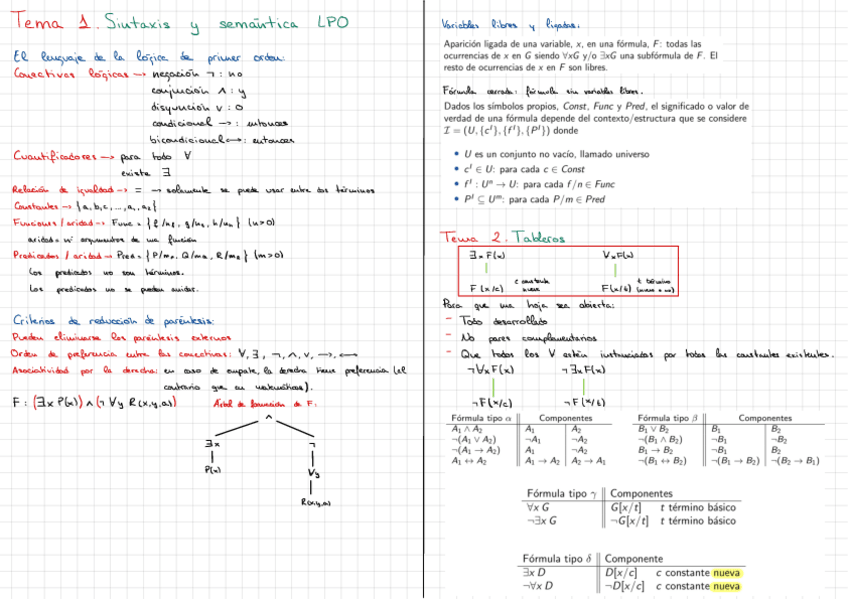 Tema 1. Sintaxis y semántica LPO
El lenguaje de la lógica de primer orden:
Conectivas lógicas → negación ¬ : no
conjunción ∧ : y
disyunción ∨ : o
condicional → : entonces
bicondicional ↔ : entonces
Cuantificadores → para todo ∀
existe ∃
Relación de igualdad → = → solamente se puede usar entre dos términos
Constantes → {a, b, c, ..., a₁, a₂}
Funciones / aridad → Func = { } (n>0)
aridad = nº argumentos de una función
Predicados / aridad → Pred = { } (m>0)
Los predicados no son términos.
Los predicados no se pueden anidar.
Criterios de reducción de paréntesis:
Pueden eliminarse los paréntesis externos
Orden de preferencia entre las conectivas: ∀, ∃, ¬, ∧, ∨, →, ↔
Asociatividad por la derecha: en caso de empate, la derecha tiene preferencia (al
contrario que en matemáticas).
F: (∃x P(x)) ∧ (¬ ∀y R(x,y,a)) Árbol de formación de F:
∧
∃x ¬
P(x) ∀y
R(x,y,a)
Variables libres y ligadas:
Aparición ligada de una variable, x, en una fórmula, F: todas las
ocurrencias de x en G siendo ∀xG y/o ∃xG una subfórmula de F. El
resto de ocurrencias de x en F son libres.
Fórmula cerrada: fórmula sin variables libres.
Dados los símbolos propios, Const, Func y Pred, el significado o valor de
verdad de una fórmula depende del contexto/estructura que se considere
I = (U, {cᴵ}, {fᴵ}, {Pᴵ}) donde
• U es un conjunto no vacío, llamado universo
• cᴵ ∈ U: para cada c ∈ Const
• fᴵ : Uⁿ → U: para cada f/n ∈ Func
• Pᴵ ⊆ Uᵐ: para cada P/m ∈ Pred
Tema 2. Tableros
∃x F(x) ∀x F(x)
F(x/c) c constante nueva F(x/t) t término
Para que una hoja sea abierta:
- Todo desarrollado
- No pares complementarios
- Que todos los ∀ estén instanciados por todas las constantes existentes.
¬∀x F(x) ¬∃x F(x)
¬F(x/c) ¬F(x/t)
Fórmula tipo α Componentes
A₁ ∧ A₂ A₁ A₂
¬(A₁ ∨ A₂) ¬A₁ ¬A₂
¬(A₁ → A₂) A₁ ¬A₂
A₁ ↔ A₂ A₁ → A₂ A₂ → A₁
Fórmula tipo β Componentes
B₁ ∨ B₂ B₁ B₂
¬(B₁ ∧ B₂) ¬B₁ ¬B₂
B₁ → B₂ ¬B₁ B₂
¬(B₁ ↔ B₂) ¬(B₁ → B₂) ¬(B₂ → B₁)
Fórmula tipo γ Componentes
∀x G G[x/t] t término básico
¬∃x G ¬G[x/t] t término básico
Fórmula tipo δ Componente
∃x D D[x/c] c constante nueva
¬∀x D ¬D[x/c] c constante nueva